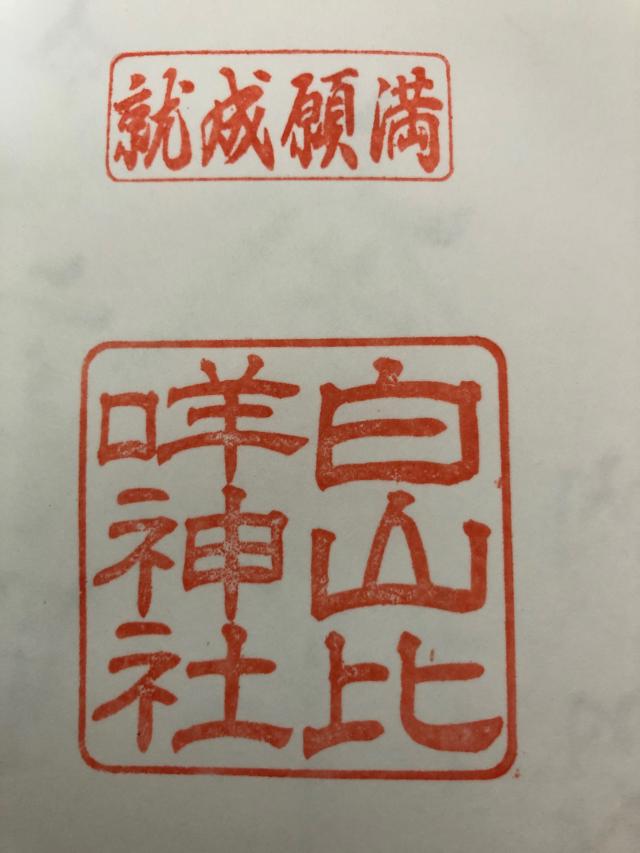 満願成就
白山比
咩神社